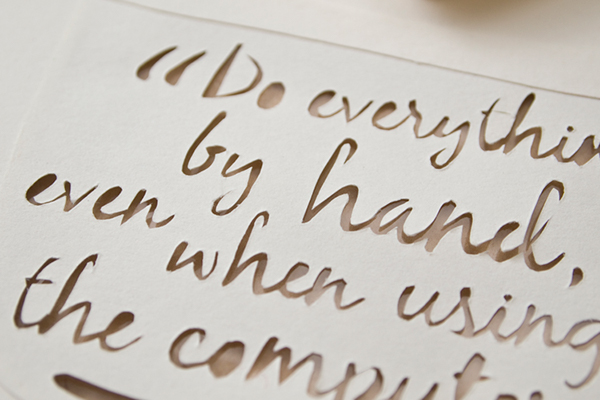 “Do everythin
by hand,
even when using
the comput